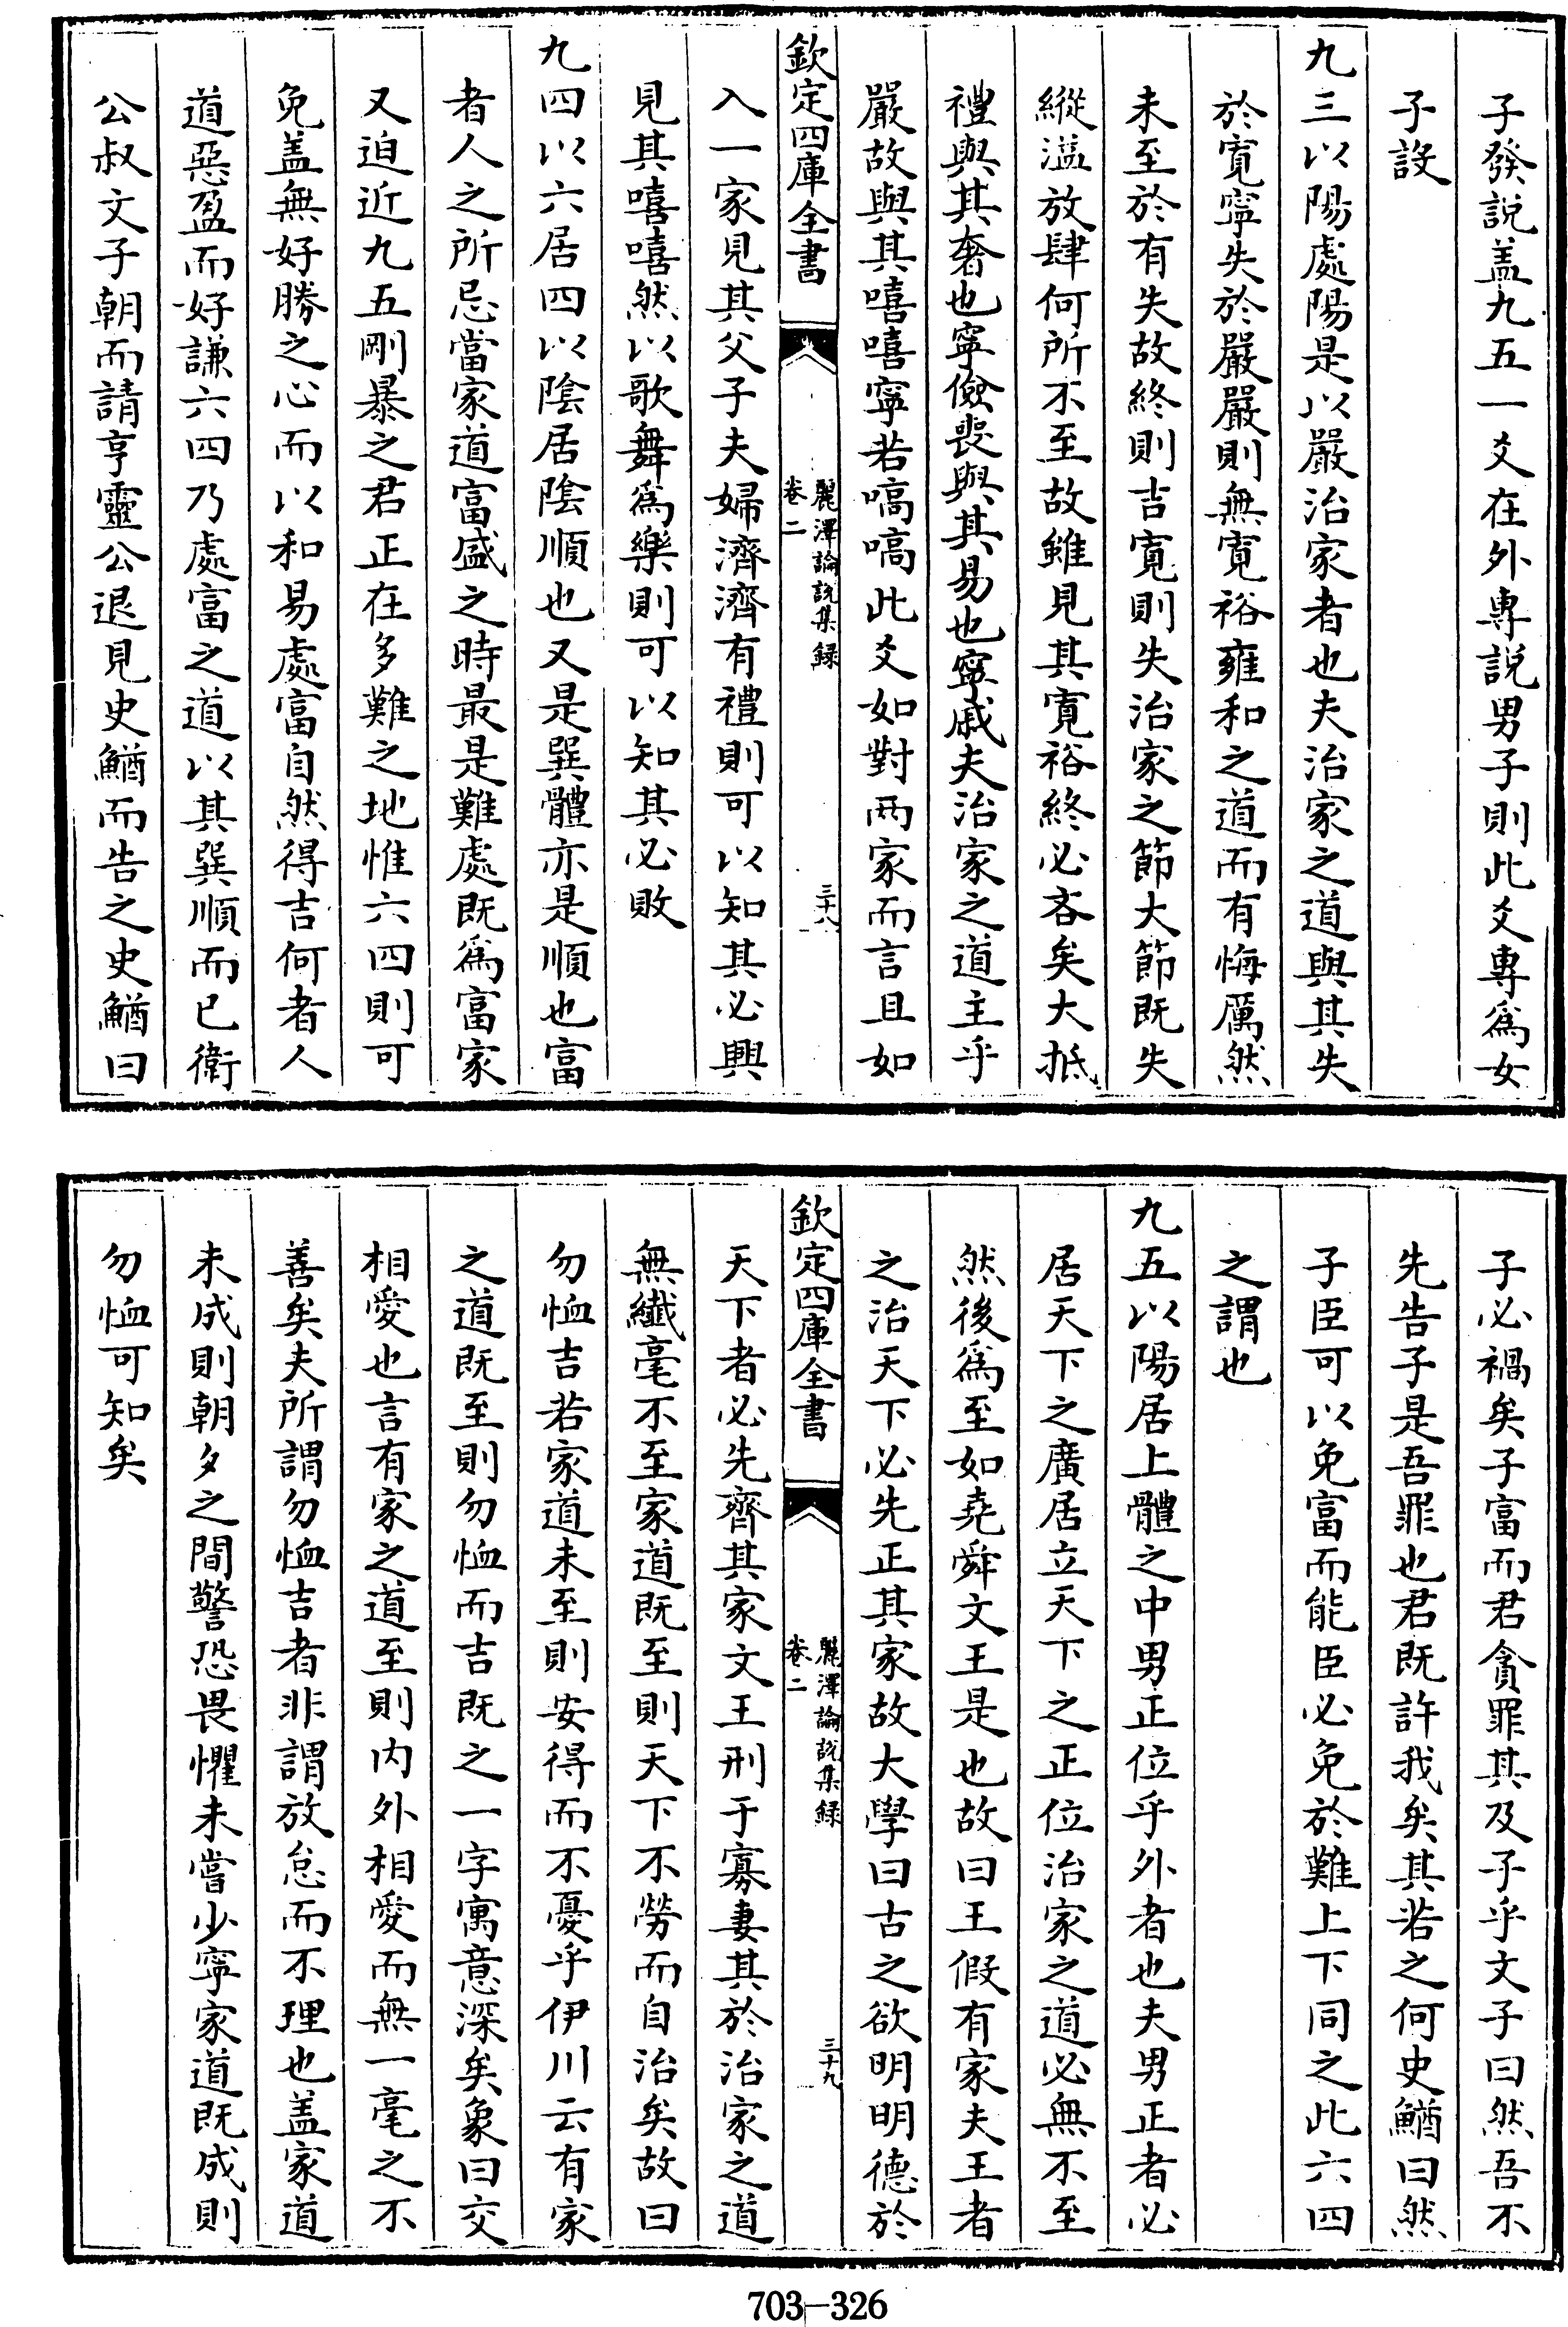 子發説盖九五一爻在外專説男子則此爻專爲女
子設
九三以陽處陽是以嚴治家者也夫治家之道與其失
於寛寧失於嚴嚴則無寛裕雍和之道而有悔厲然
未至於有失故終則吉寛則失治家之節大節既失
縱溢放肆何所不至故雖見其寛裕終必吝矣大抵
禮與其奢也寧儉喪與其易也寧戚夫治家之道主乎
嚴故與其嘻嘻寧若嗃嗃此爻如對兩家而言且如
欽定四庫全書
麗澤論説集録
卷二
三十八
入一家見其父子夫婦濟濟有禮則可以知其必興
見其嘻嘻然以歌舞爲樂則可以知其必敗
九四以六居四以陰居陰順也又是巽體亦是順也富
者人之所忌當家道富盛之時最是難處既爲富家
又迫近九五剛暴之君正在多難之地惟六四則可
免盖無好勝之心而以和易處富自然得吉何者人
道惡盈而好謙六四乃處富之道以其巽順而已衛
公叔文子朝而請享靈公退見史鰌而告之史鰌曰
子必禍矣子富而君貪罪其及子乎文子曰然吾不
先告子是吾罪也君既許我矣其若之何史鰌曰然
子臣可以免富而能臣必免於難上下同之此六四
之謂也
九五以陽居上體之中男正位乎外者也夫男正者必
居天下之廣居立天下之正位治家之道必無不至
然後爲至如堯舜文王是也故曰王假有家夫王者
之治天下必先正其家故大學曰古之欲明明德於
欽定四庫全書
麗澤論説集録
卷二
三十九
天下者必先齊其家文王刑于寡妻其於治家之道
無纎毫不至家道既至則天下不勞而自治矣故曰
勿恤吉若家道未至則安得而不憂乎伊川云有家
之道既至則勿恤而吉既之一字寓意深矣象曰交
相愛也言有家之道至則内外相愛而無一毫之不
善矣夫所謂勿恤吉者非謂放怠而不理也盖家道
未成則朝夕之間警恐畏懼未嘗少寧家道既成則
勿恤可知矣
703-326